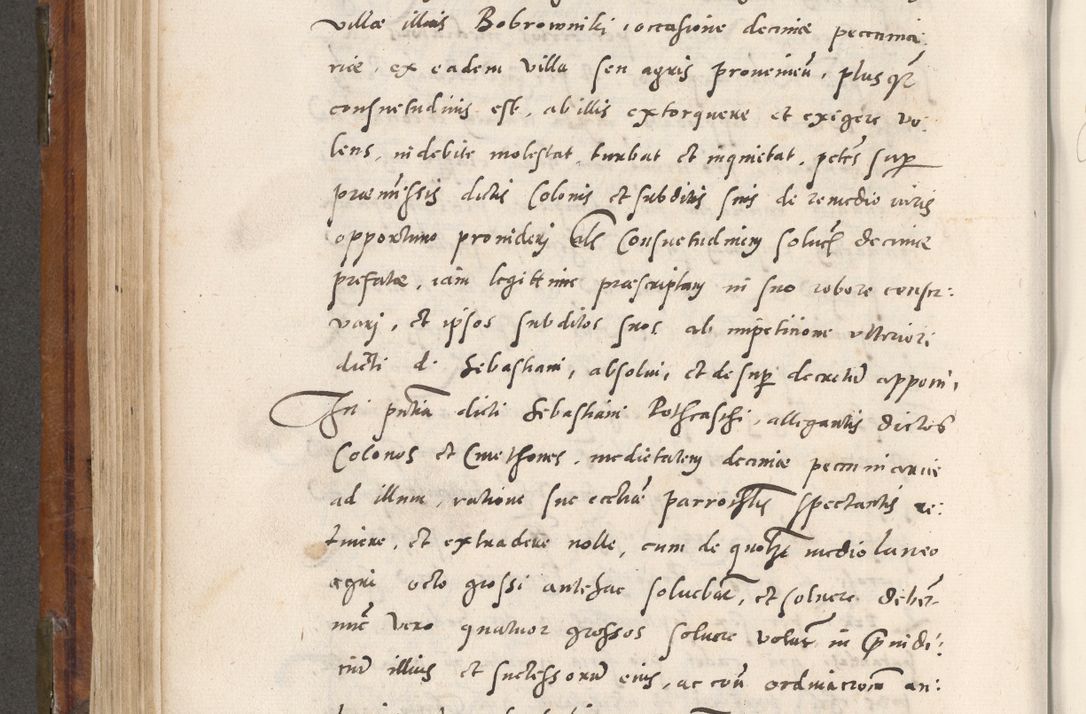 villæ illius Bobrowniki, occasione decimæ pecunia:
riæ, ex eadem villa seu agris provenien̄, plus qȝ
consuetudinis est, ab illis extorquere et exigere vo:
lens, indebite molestat turbat et inquietat, peten̄ super
præmissis dictis Colonis et subditis suis de remedio iuris
opportuno provideri Consuetudinem solut decimæ
prefatæ, iam legittime præscriptam in suo robore conser:
vari, et ipsos subditos suos ab impeticione ulteriori
dicti d. Sebastiani, absolvi, et desuper decretum apponi,
In pntia dicti Sebastiani Pothraschi, allegantis dictos
Colonos et Cmethones, medietatem decimæ pecuniariæ
ad illum, ratione suæ ecctiæ parrochtis spectantis re:
tinere, et extradere nolle, cum de quolȝt medio laneo
agri octo grossi antehac solvebāt, et solvere deber̄
nūc vero quatuor grossos solvere volūt in præiudi:
tiū illius et successorum eius, ac con ordinacionem an: